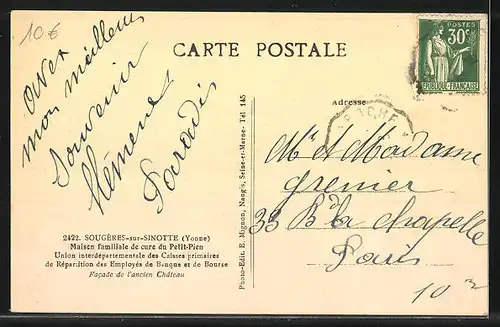 10 €
CARTE POSTALE
POSTES
30c
RÉPUBLIQUE FRANÇAISE
Avec
mon meilleur
Souvenir
Clémence
Paradis
2422. SOUGÈRES-sur-SINOTTE (Yonne)
Maison familiale de cure du Petit-Pien
Union interdépartementale des Caisses primaires
de Répartition des Employés de Banque et de Bourse
Façade de l'ancien Château
Photo-Edit. E. Mignon, Nangis, Seine-et-Marne- Tél 145
Adresse
Mr et Madame
Grenier
33 Bd de la Chapelle
Paris
10e